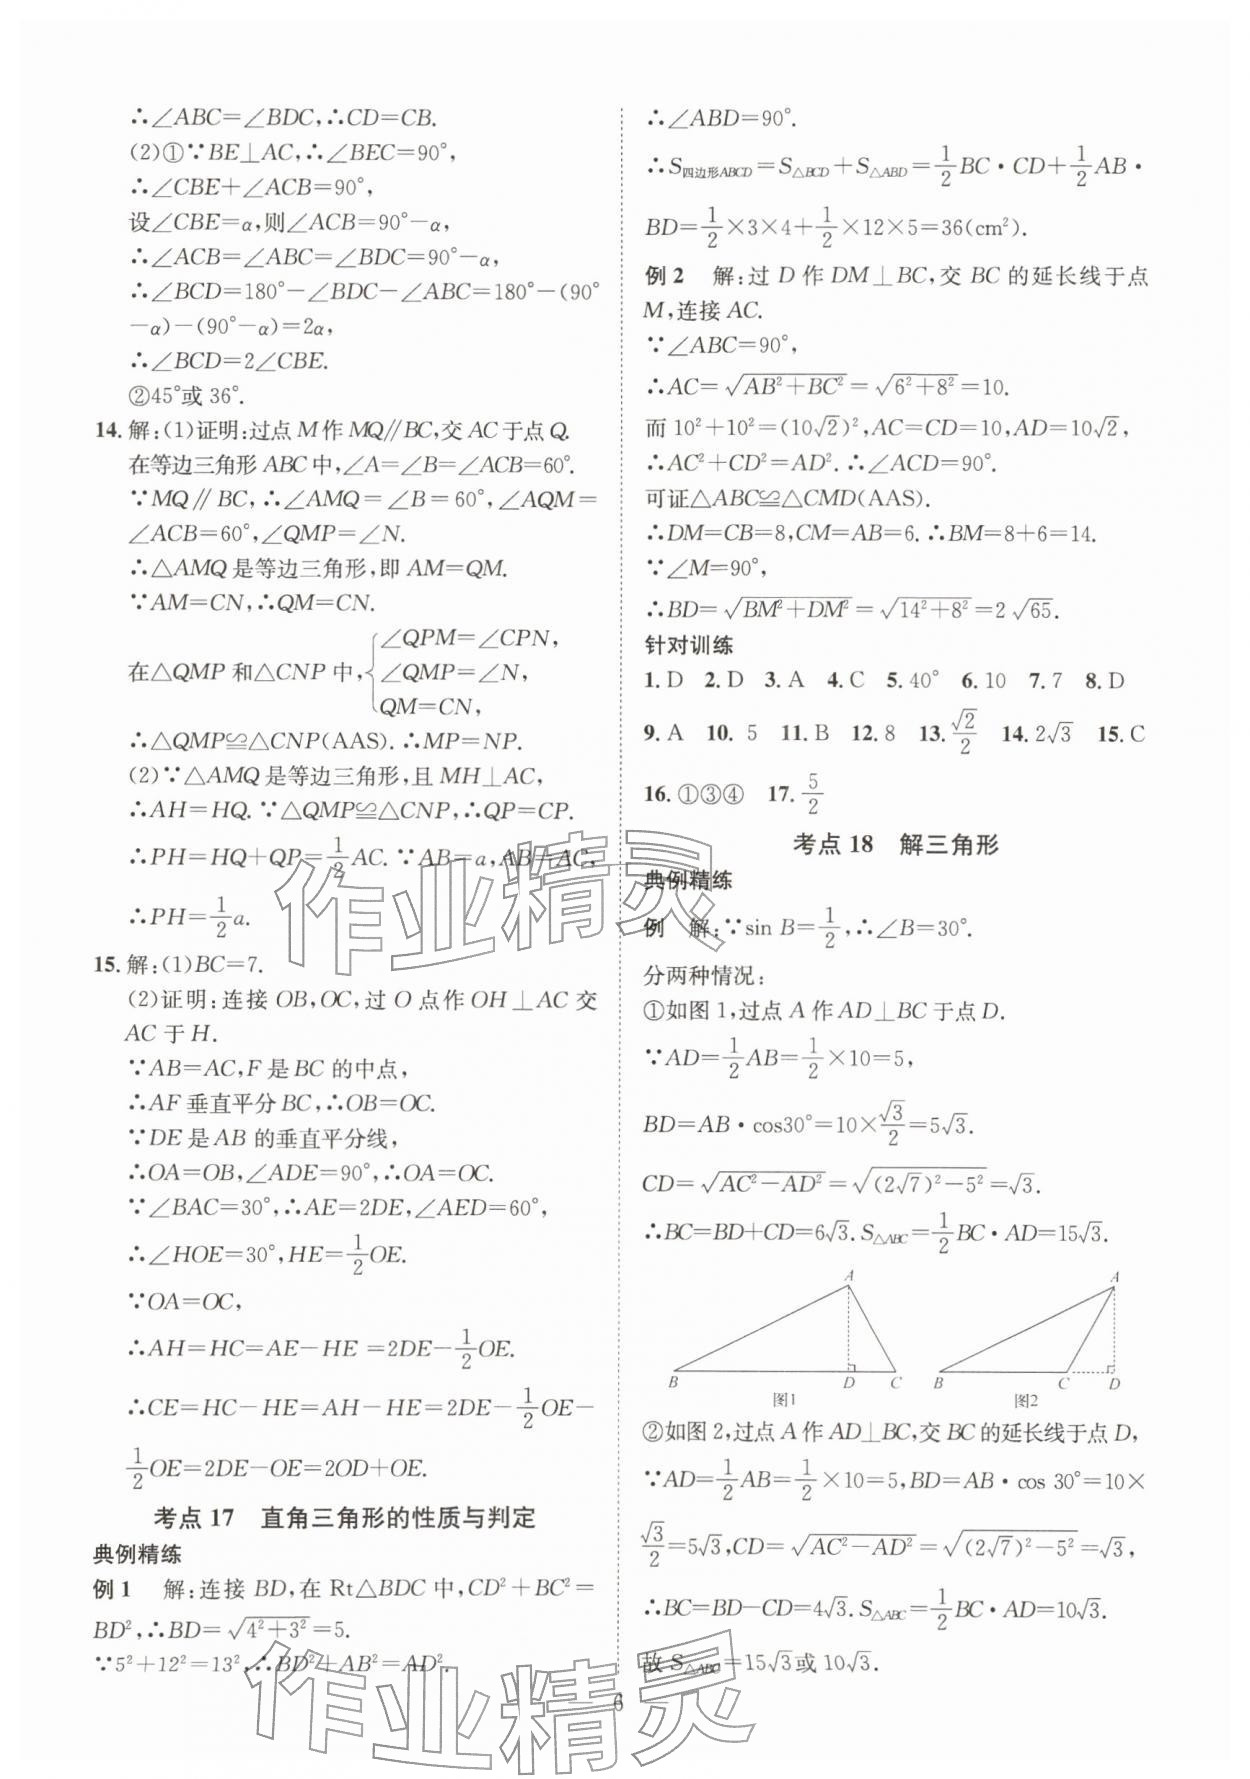 ∴∠ABC=∠BDC,∴CD=CB.
(2)①∵BE⊥AC,∴∠BEC=90°,
∴∠CBE+∠ACB=90°,
设∠CBE=α,则∠ACB=90°-α,
∴∠ACB=∠ABC=∠BDC=90°-α,
∴∠BCD=180°-∠BDC-∠ABC=180°-(90°
-α)-(90°-α)=2α,
∴∠BCD=2∠CBE.
②45°或 36°.
14.解:(1)证明:过点 M 作 MQ∥BC,交 AC 于点 Q.
在等边三角形 ABC 中,∠A=∠B=∠ACB=60°.
∵MQ∥BC,∴∠AMQ=∠B=60°,∠AQM=
∠ACB=60°,∠QMP=∠N.
∴△AMQ 是等边三角形,即 AM=QM.
∵AM=CN,∴QM=CN.
在△QMP 和△CNP 中,{∠QPM=∠CPN,
∠QMP=∠N,
QM=CN,
∴△QMP≌△CNP(AAS).∴MP=NP.
(2)∵△AMQ 是等边三角形,且 MH⊥AC,
∴AH=HQ.∵△QMP≌△CNP,∴QP=CP.
∴PH=HQ+QP=1/2AC.∵AB=a,AB=AC,
∴PH=1/2a.
15.解:(1)BC=7.
(2)证明:连接 OB,OC,过 O 点作 OH⊥AC 交
AC 于 H.
∵AB=AC,F 是 BC 的中点,
∴AF 垂直平分 BC,∴OB=OC.
∵DE 是 AB 的垂直平分线,
∴OA=OB,∠ADE=90°,∴OA=OC.
∵∠BAC=30°,∴AE=2DE,∠AED=60°,
∴∠HOE=30°,HE=1/2OE.
∵OA=OC,
∴AH=HC=AE-HE =2DE-1/2OE.
∴CE=HC-HE=AH-HE=2DE-1/2OE-
1/2OE=2DE-OE=2OD+OE.
考点 17 直角三角形的性质与判定
典例精练
例 1 解:连接 BD,在 Rt△BDC 中,CD²+BC²=
BD²,∴BD=√(4²+3²)=5.
∵5²+12²=13²,∴BD²+AB²=AD².
∴∠ABD=90°.
∴S四边形ABCD=S△BCD+S△ABD=1/2BC·CD+1/2AB·
BD=1/2×3×4+1/2×12×5=36(cm²).
例 2 解:过 D 作 DM⊥BC,交 BC 的延长线于点
M,连接 AC.
∵∠ABC=90°,
∴AC=√(AB²+BC²)=√(6²+8²)=10.
而 10²+10²=(10√2)²,AC=CD=10,AD=10√2,
∴AC²+CD²=AD².∴∠ACD=90°.
可证△ABC≌△CMD(AAS).
∴DM=CB=8,CM=AB=6.∴BM=8+6=14.
∵∠M=90°,
∴BD=√(BM²+DM²)=√(14²+8²)=2√65.
针对训练
1.D 2.D 3.A 4.C 5.40° 6.10 7.7 8.D
9.A 10.5 11.B 12.8 13.√2/2 14.2√3 15.C
16.①③④ 17.5/2
考点 18 解三角形
典例精练
例 解:∵sin B=1/2,∴∠B=30°.
分两种情况:
①如图 1,过点 A 作 AD⊥BC 于点 D.
∵AD=1/2AB=1/2×10=5,
BD=AB·cos30°=10×√3/2=5√3.
CD=√(AC²-AD²)=√((2√7)²-5²)=√3.
∴BC=BD+CD=6√3.S△ABC=1/2BC·AD=15√3.
A
B D C
图1
A
B C D
图2
②如图 2,过点 A 作 AD⊥BC,交 BC 的延长线于点 D,
∵AD=1/2AB=1/2×10=5,BD=AB·cos 30°=10×
√3/2=5√3,CD=√(AC²-AD²)=√((2√7)²-5²)=√3,
∴BC=BD-CD=4√3.S△ABC=1/2BC·AD=10√3.
故 S△ABC=15√3或 10√3.
6
作业精灵
作业精灵